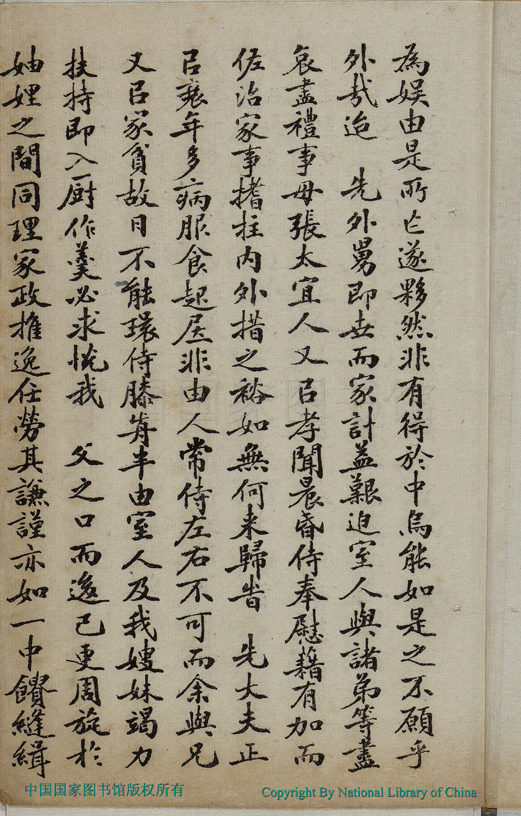 為娱由是所亡遂夥然非有得於中烏能如是之不願乎
外哉迨 先外舅即世而家計益艱迫室人與諸弟等盡
哀盡禮事母張太宜人又㠯孝聞晨昏侍奉慰藉有加而
佐治家事搘拄内外措之裕如無何来歸昔 先大夫正
㠯衰年多病服食起居非由人常侍左右不可而余與兄
又㠯家貧故日不能環侍膝前半由室人及我嫂妹竭力
扶持即入厨作羹必求悦我 父之口而後已更周旋於
妯娌之間同理家政推逸任勞其謙謹亦如一中饋縫緝
中国国家图书馆版权所有
Copyright By National Library of China